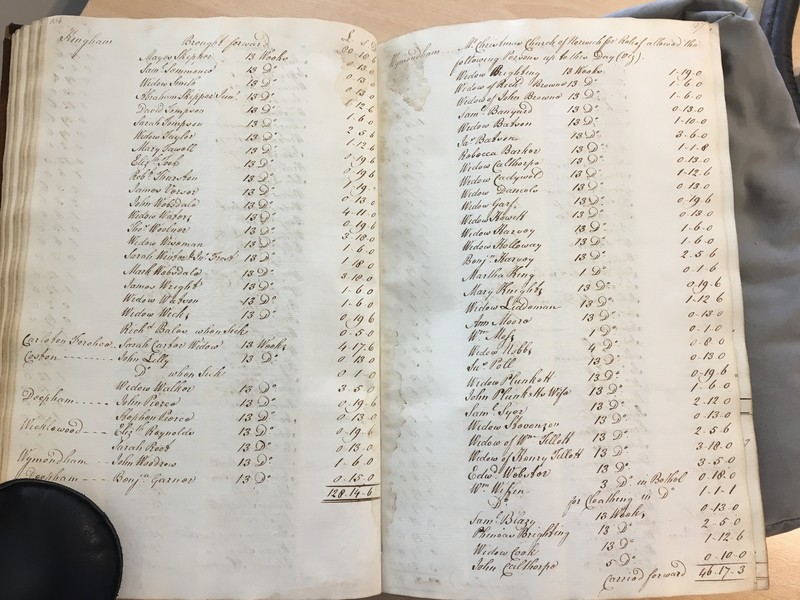 Hingham Brought forward £ S D
Mayes Skipper 13 Weeks
Sam.l Semmence 13 D.o 0-13-0
Widow Smith 13 D.o
Abraham Skipper Sen.r 13 D.o
David Tompson 13 D.o 12-6
Sarah Tompson 13 D.o 1-6
Widow Taylor 13 D.o 2-5-6
Mary Sawell 13 D.o 1-12-6
Eliz.th Cob 13 D.o 0-19-6
Rob.t Thurston 13 D.o 0-19-6
James Verser 13 D.o
John Wobsdale 13 D.o 0-13-0
Widow Waters 13 D.o 4-11-0
Tho.s Woolner 13 D.o 0-19-6
Widow Wiseman 13 D.o 3-18-0
Sarah Winter & Jos. Frost 13 D.o 1-6-0
Mark Wobsdale 13 D.o
James Wright 13 D.o
Widow Watson 13 D.o 1-6-0
Widow Weeks 13 D.o 0-19-6
Rich.d Bales when Sick 0-5-0
Carleton Forehoe Sarah Carter Widow 13 Weeks 4-17-6
Coston John Lilly 13 D.o 0-13-0
D.o when Sick 0-1-0
Widow Walker 13 D.o 3-5-0
Deepham John Pierce 13 D.o 0-19-6
Stephen Pierce 13 D.o 0-13-0
Wicklewood Eliz.th Reynolds 13 D.o 0-19-6
Sarah Root 13 D.o 0-13-0
Wymondham John Woodrow 13 D.o 1-6-0
Deepham Benj.n Garner 13 D.o 0-15-0
128-14-6
Wymondham M.r Christmas Church of Norwich for Relief allowed the
following Persons up to this Day
Widow Brighting 13 Weeks 1-19-0
Widow of Rich.d Browne 13 D.o 1-6-0
Widow of John Browne 13 D.o 1-6-0
Sam.l Banyard 13 D.o 0-13-0
Widow Batson 13 D.o 1-10-0
Ja.s Batson 13 D.o 3-6-0
Rebecca Barker 13 D.o 1-1-8
Widow Calthorpe 13 D.o 0-13-0
Widow Cadywol 13 D.o 1-12-6
Widow Daniels 13 D.o 0-13-0
Widow Garf 13 D.o 0-19-6
Widow Hewett 13 D.o 0-13-0
Widow Harvey 13 D.o 1-6-0
Widow Holloway 13 D.o 1-6-0
Benj.n Harvey 13 D.o 2-5-6
Martha King 1 D.o 0-1-6
Mary Knights 13 D.o 0-19-6
Widow Liddeman 13 D.o 1-12-6
Ann Moore 13 D.o 0-13-0
W.m 1 D.o 0-1-0
Widow Nobbs 4 D.o 0-8-0
Poll 13 D.o 0-13-0
Widow Plunkett 13 D.o 0-19-6
John Plunketts Wife 13 D.o 1-6-0
Sam.l Tyer 13 D.o 2-12-0
Widow Stevenson 13 D.o 0-13-0
Widow of W.m Tillett 13 D.o 2-5-6
Widow of Henry Tillett 13 D.o 3-18-0
Edw.d Webster 13 D.o 3-5-0
W.m 3 D.o in Bethel 0-18-0
D.o for Cloathing in D.o 1-1-1
Sam.l Blazy 13 Weeks 0-13-0
Phineas Brighting 13 D.o 2-5-0
Widow Cook 13 D.o 1-12-6
John Calthorpe 5 D.o 0-10-0
Carried forward 46-17-3